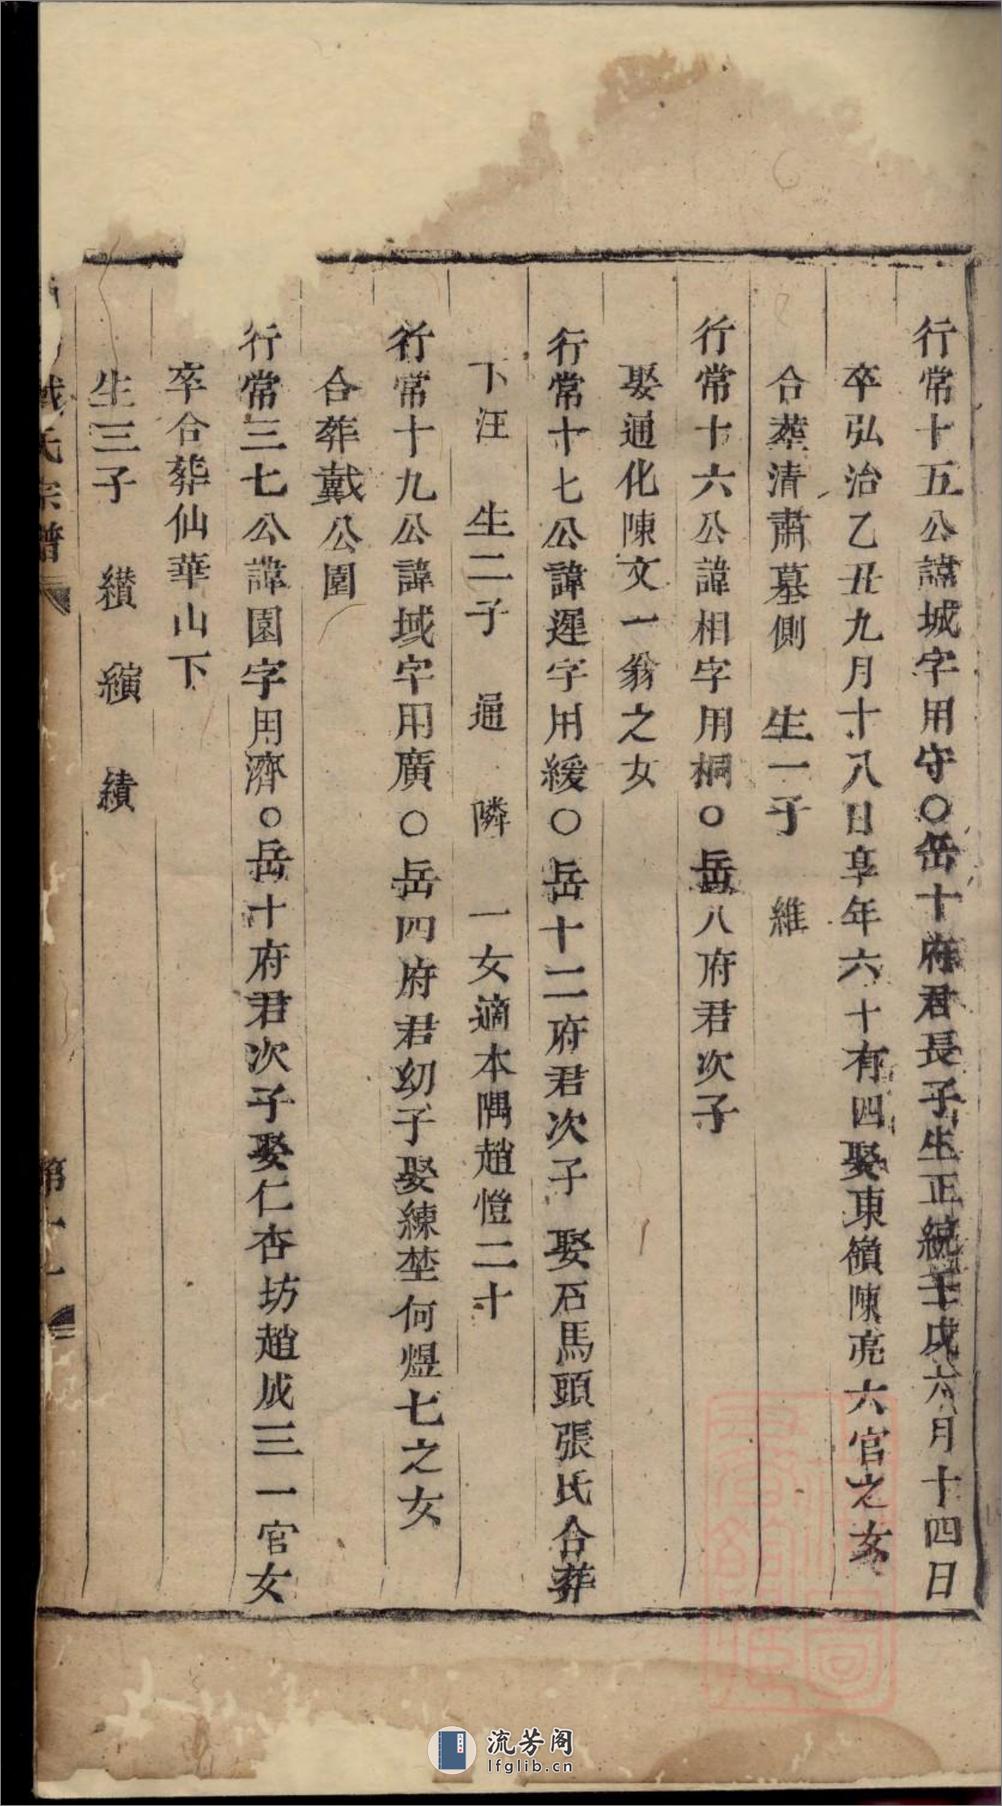 行常十五公諱城字用守○岳十府君長子生正統壬戌六月十四日
卒弘治乙丑九月十八日享年六十有四娶東嶺陳亮六官之女
合葬清肅墓側　生一子　維
行常十六公諱相字用桐○岳八府君次子
娶通化陳文一翁之女
行常十七公諱遲字用緩○岳十二府君次子　娶石馬頭張氏合葬
下汪　生二子　通　隣　一女適本隅趙愷二十
行常十九公諱域字用廣○岳四府君幼子娶練埜何煜七之女
合葬戴公園
行常三七公諱園字用濟○岳十府君次子娶仁杏坊趙成三一官女
卒合葬仙華山下
生三子　纉　纘　績
戴氏宗譜
第十一
流芳阁
lfglib.cn